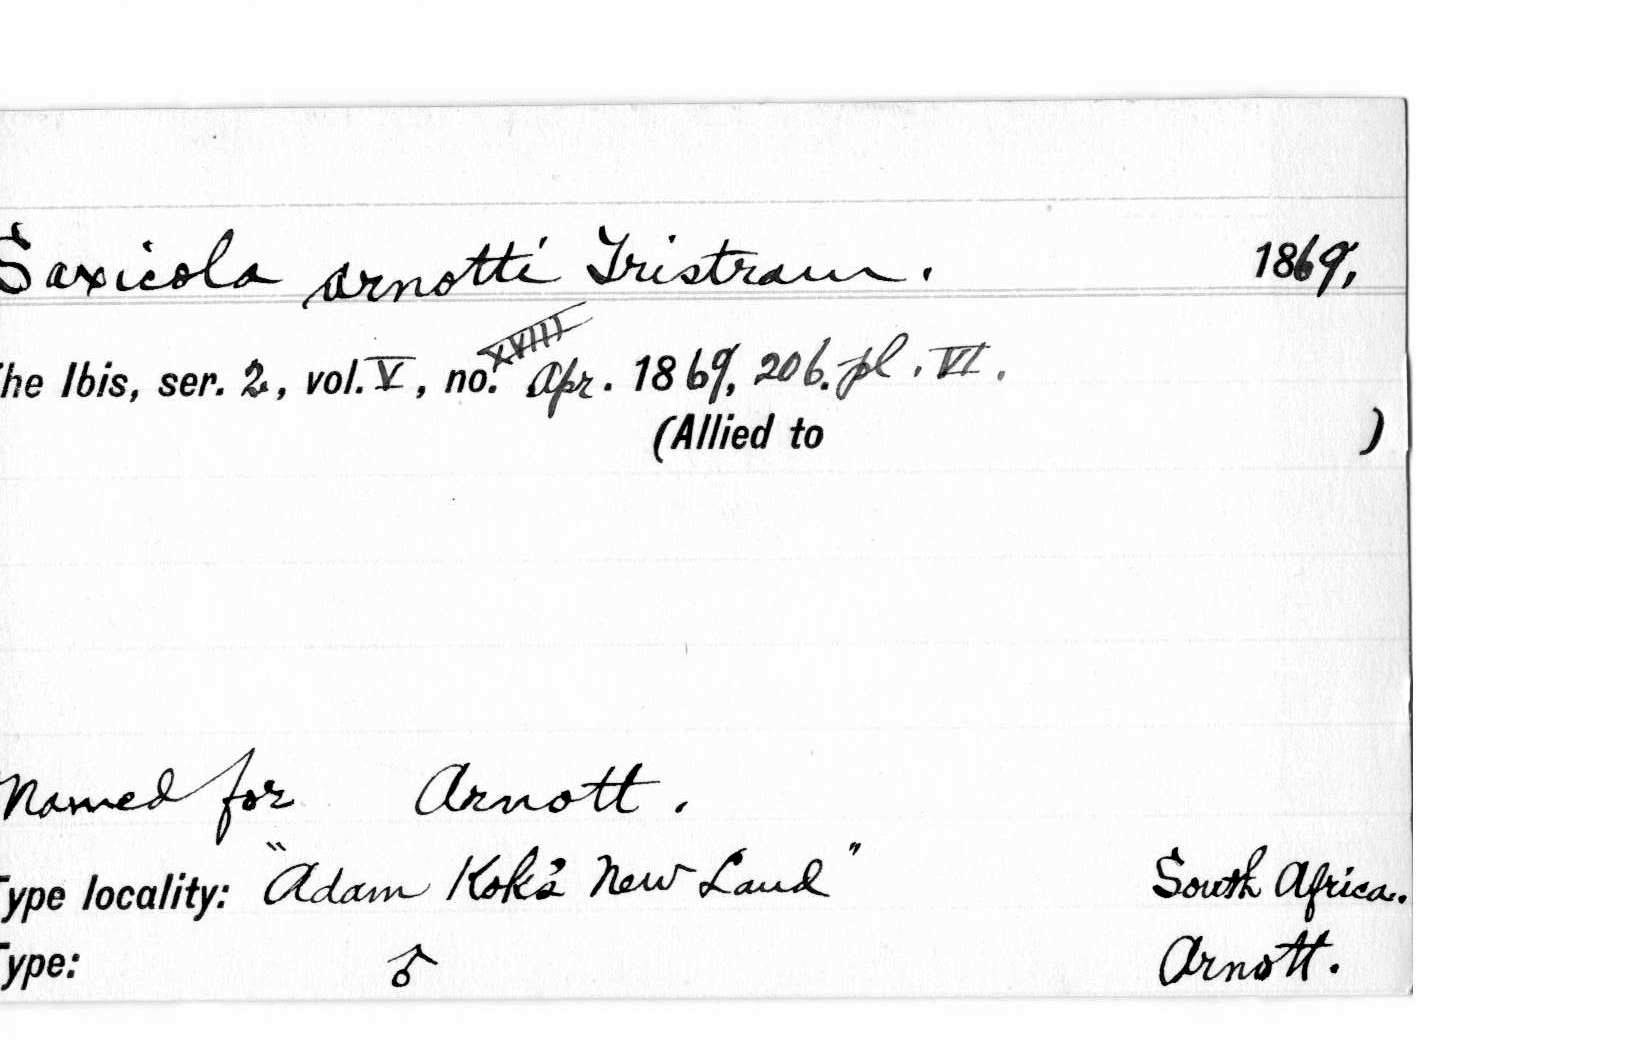 Saxicola arnotti Tristram. 1869,
The Ibis, ser. 2, vol. V, no. XVIII Apr. 1869, 206. pl. VI.
(Allied to )
Named for Arnott.
Type locality: "Adam Kok's New Land" South Africa.
Type: ♂ Arnott.